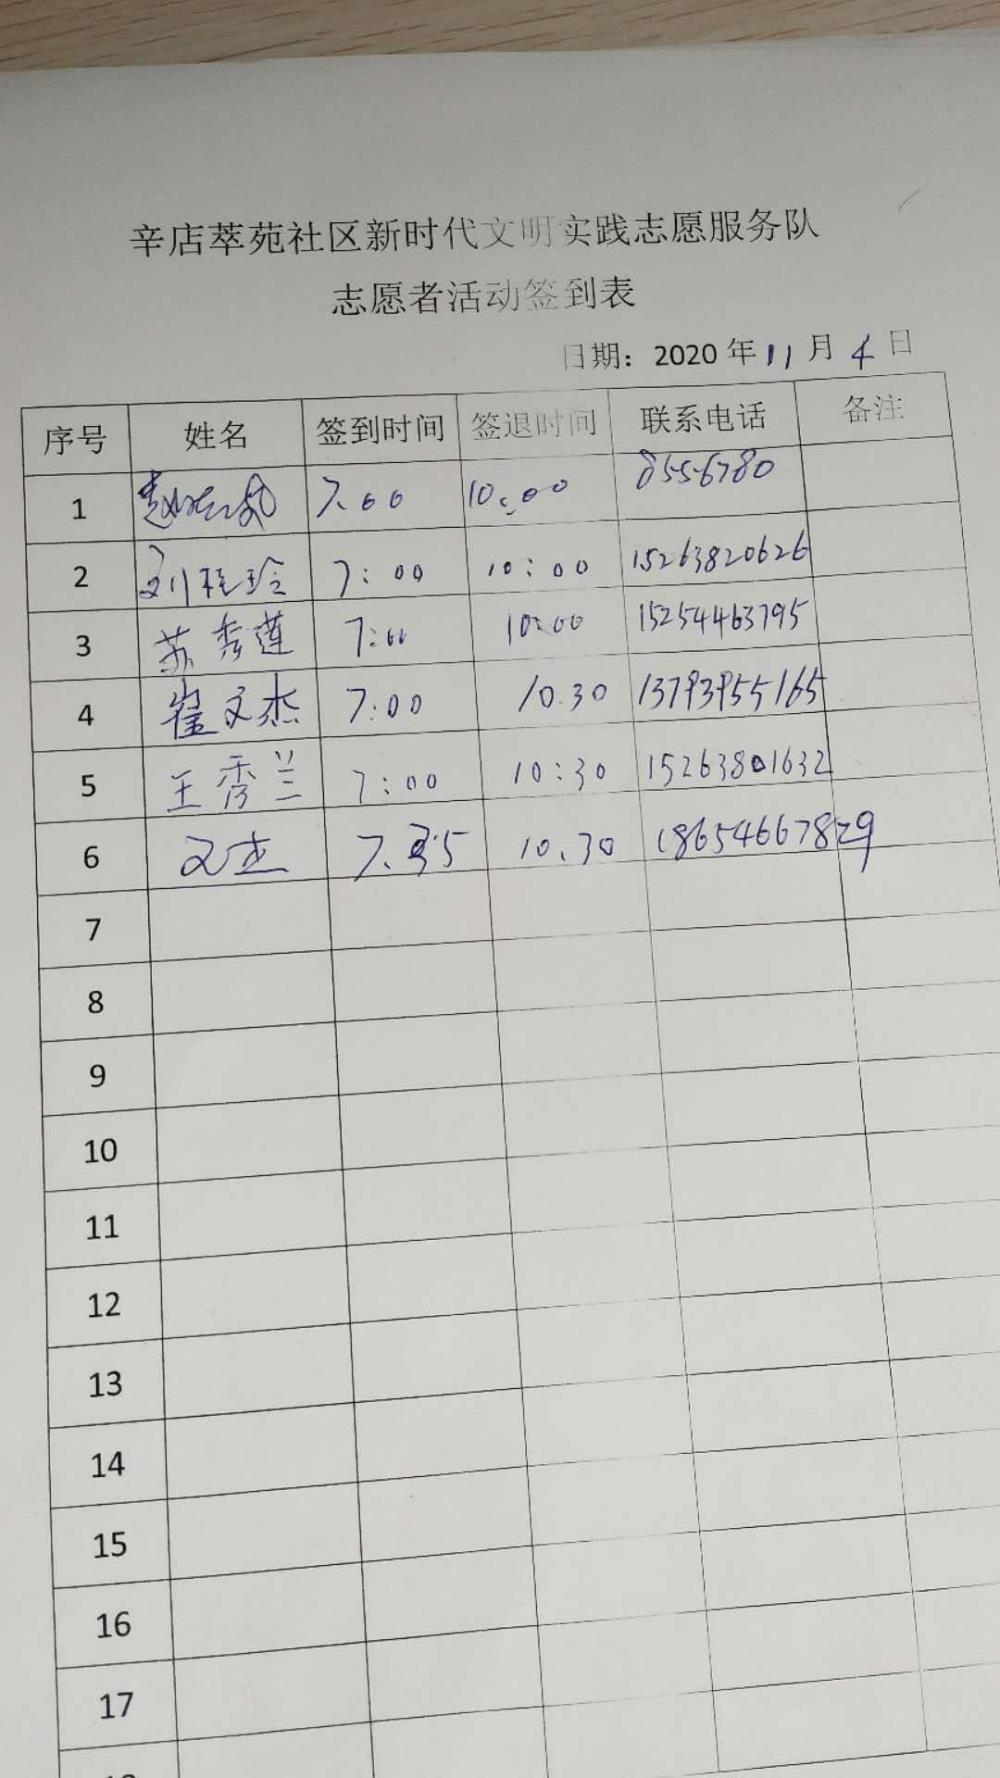 辛店萃苑社区新时代文明实践志愿服务队
志愿者活动签到表
日期：2020年11月4日
序号 姓名 签到时间 签退时间 联系电话 备注
1 7.00 10:00 8556780
2 刘桂玲 7:00 10:00 15263820626
3 苏秀莲 7:00 10:00 15254463795
4 崔文杰 7:00 10.30 13793955165
5 王秀兰 7:00 10:30 15263801632
6 7. 10.30 18654667829
7
8
9
10
11
12
13
14
15
16
17